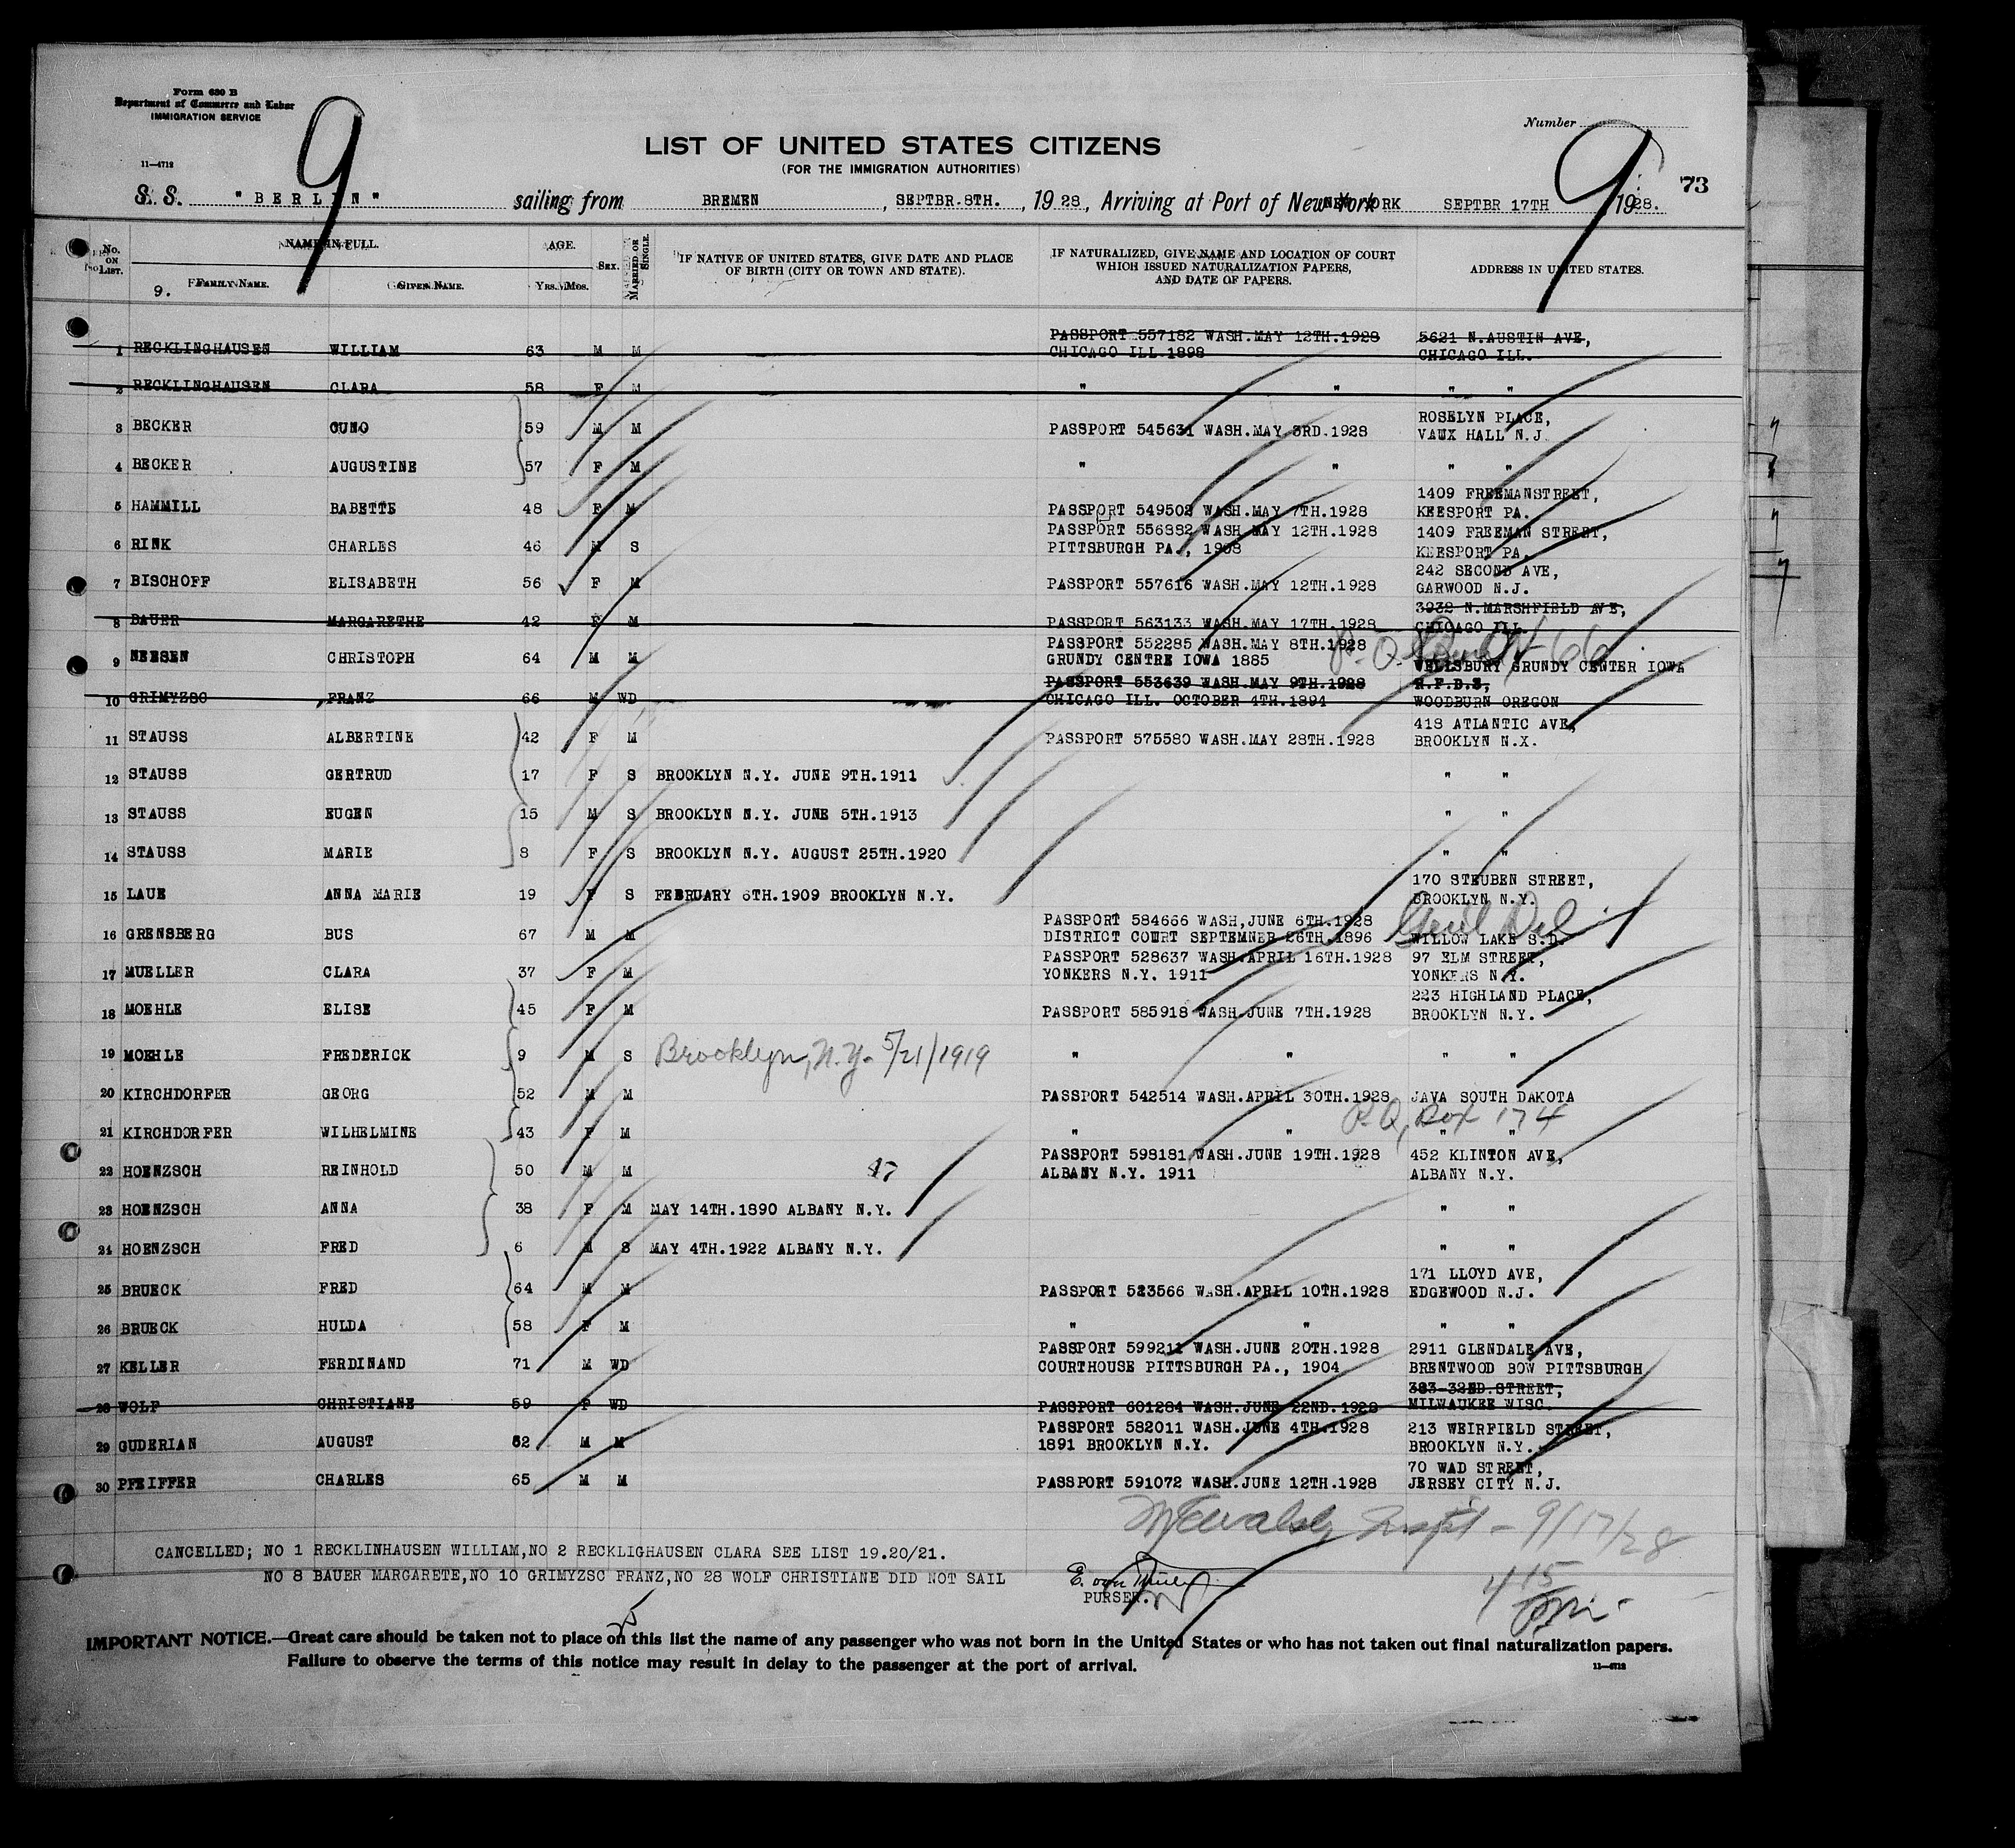 Form 630 B
Department of Commerce and Labor
IMMIGRATION SERVICE
11—4712
9
9
Number
73
LIST OF UNITED STATES CITIZENS
(FOR THE IMMIGRATION AUTHORITIES)
S. S. "BERLIN" sailing from BREMEN, SEPTBR.8TH., 1928, Arriving at Port of New York SEPTBR 17TH, 1928.
No. ON LIST. NAME IN FULL. AGE. SEX. MARRIED OR SINGLE. IF NATIVE OF UNITED STATES, GIVE DATE AND PLACE OF BIRTH (CITY OR TOWN AND STATE). IF NATURALIZED, GIVE NAME AND LOCATION OF COURT WHICH ISSUED NATURALIZATION PAPERS, AND DATE OF PAPERS. ADDRESS IN UNITED STATES.
9. FAMILY NAME. GIVEN NAME. YRS. MOS.
PASSPORT 557182 WASH.MAY 12TH.1928 5621 N.AUSTIN AVE,
1 RECKLINGHAUSEN WILLIAM 63 M M CHICAGO ILL.1898 CHICAGO ILL.
2 RECKLINGHAUSEN CLARA 58 F M " " " "
ROSELYN PLACE,
3 BECKER CUNO 59 M M PASSPORT 545631 WASH.MAY 3RD.1928 VAUX HALL N.J.
4 BECKER AUGUSTINE 57 F M " " " "
1409 FREEMANSTREET,
5 HAMMILL BABETTE 48 F M PASSPORT 549502 WASH.MAY 7TH.1928 KEESPORT PA.
PASSPORT 556882 WASH.MAY 12TH.1928 1409 FREEMAN STREET,
6 RINK CHARLES 46 M S PITTSBURGH PA., 1908 KEESPORT PA.
242 SECOND AVE,
7 BISCHOFF ELISABETH 56 F M PASSPORT 557616 WASH.MAY 12TH.1928 GARWOOD N.J.
3932 N.MARSHFIELD AVE,
8 BAUER MARGARETHE 42 F M PASSPORT 563133 WASH.MAY 17TH.1928 CHICAGO ILL.
PASSPORT 552285 WASH.MAY 8TH.1928 P.O. Box 66
9 NEESEN CHRISTOPH 64 M M GRUNDY CENTRE IOWA 1885 WELLSBURY GRUNDY CENTER IOWA
PASSPORT 553639 WASH.MAY 9TH.1928 R.F.D.3,
10 GRIMYZSC FRANZ 66 M WD CHICAGO ILL. OCTOBER 4TH.1894 WOODBURN OREGON
418 ATLANTIC AVE,
11 STAUSS ALBERTINE 42 F M PASSPORT 575580 WASH.MAY 28TH.1928 BROOKLYN N.X.
12 STAUSS GERTRUD 17 F S BROOKLYN N.Y. JUNE 9TH.1911 " "
13 STAUSS EUGEN 15 M S BROOKLYN N.Y. JUNE 5TH.1913 " "
14 STAUSS MARIE 8 F S BROOKLYN N.Y. AUGUST 25TH.1920 " "
170 STEUBEN STREET,
15 LAUE ANNA MARIE 19 F S FEBRUARY 6TH.1909 BROOKLYN N.Y. BROOKLYN N.Y.
PASSPORT 584666 WASH,JUNE 6TH.1928 Genl Del
16 GRENSBERG BUS 67 M M DISTRICT COURT SEPTEMNER 26TH.1896 WILLOW LAKE S.D.
PASSPORT 528637 WASH.APRIL 16TH.1928 97 ELM STREET,
17 MUELLER CLARA 37 F M YONKERS N.Y. 1911 YONKERS N.Y.
223 HIGHLAND PLACE,
18 MOEHLE ELISE 45 F M PASSPORT 585918 WASH.JUNE 7TH.1928 BROOKLYN N.Y.
19 MOEHLE FREDERICK 9 M S Brooklyn, N.Y. 5/21/1919 " " " "
20 KIRCHDORFER GEORG 52 M M PASSPORT 542514 WASH.APRIL 30TH.1928 JAVA SOUTH DAKOTA
P.O. Box 174
21 KIRCHDORFER WILHELMINE 43 F M " " " "
PASSPORT 598181 WASH.JUNE 19TH.1928 452 KLINTON AVE,
22 HOENZSCH REINHOLD 50 M M 17 ALBANY N.Y. 1911 ALBANY N.Y.
23 HOENZSCH ANNA 38 F M MAY 14TH.1890 ALBANY N.Y. " "
24 HOENZSCH FRED 6 M S MAY 4TH.1922 ALBANY N.Y. " "
171 LLOYD AVE,
25 BRUECK FRED 64 M M PASSPORT 523566 WASH.APRIL 10TH.1928 EDGEWOOD N.J.
26 BRUECK HULDA 58 F M " " " "
PASSPORT 599211 WASH.JUNE 20TH.1928 2911 GLENDALE AVE,
27 KELLER FERDINAND 71 M WD COURTHOUSE PITTSBURGH PA., 1904 BRENTWOOD BOW PITTSBURGH
383-32ND.STREET,
28 WOLF CHRISTIANE 59 F WD PASSPORT 601284 WASH.JUNE 22ND.1928 MILWAUKEE WISC.
PASSPORT 582011 WASH.JUNE 4TH.1928 213 WEIRFIELD STREET,
29 GUDERIAN AUGUST 62 M M 1891 BROOKLYN N.Y. BROOKLYN N.Y.
70 WAD STREET,
30 PFEIFFER CHARLES 65 M M PASSPORT 591072 WASH.JUNE 12TH.1928 JERSEY CITY N.J.
9/17/28
CANCELLED; NO 1 RECKLINHAUSEN WILLIAM,NO 2 RECKLIGHAUSEN CLARA SEE LIST 19.20/21.
NO 8 BAUER MARGARETE,NO 10 GRIMYZSC FRANZ,NO 28 WOLF CHRISTIANE DID NOT SAIL
PURSER.
4 15
IMPORTANT NOTICE.—Great care should be taken not to place on this list the name of any passenger who was not born in the United States or who has not taken out final naturalization papers.
Failure to observe the terms of this notice may result in delay to the passenger at the port of arrival.
11—4712